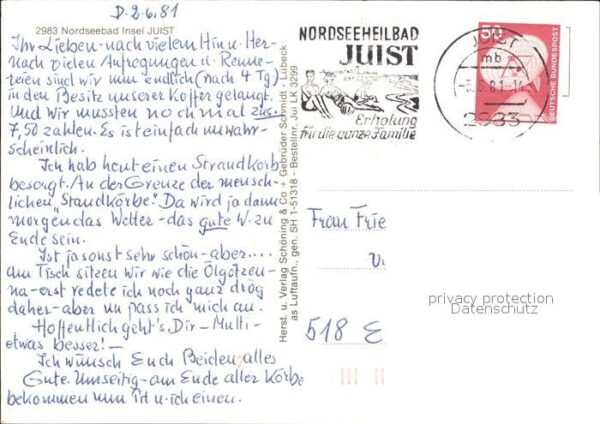 D. 2.6.81
2983 Nordseebad Insel JUIST
Ihr Lieben - nach vielem Hin u. Her -
nach vielen Aufregungen u. Renne-
reien sind wir nun endlich (nach 4 Tg)
in den Besitz unserer Koffer gelangt.
Und wir mussten nochmal zus.
7,50 zahlen. Es ist einfach unwahr-
scheinlich.
Ich hab heut einen Strandkorb
besorgt. An der Grenze der mensch-
lichen "Standkörbe! Da wird ja dann
morgen das Wetter - das gute W. zu
Ende sein.
Ist ja sonst sehr schön - aber....
am Tisch sitzen wir wie die Ölgötzen -
na - erst redete ich noch ganz
daher - aber nu pass ich mich an.
Hoffentlich geht's Dir - Mutti -
etwas besser! -
Ich wünsch Euch Beiden alles
Gute. Umseitig - am Ende aller Körbe
bekommen nun u. ich einen.
Herst. u. Verlag Schöning & Co + Gebrüder Schmidt · Lübeck
als Luftaufn., gen. SH 1-51318 - Bestellnr. Jui LK 3299
NORDSEEHEILBAD
JUIST
Erholung
für die ganze Familie
JUIST
mb
-3.6.81-14
2983
50
DEUTSCHE BUNDESPOST
Frau Frie
518 E
privacy protection
Datenschutz